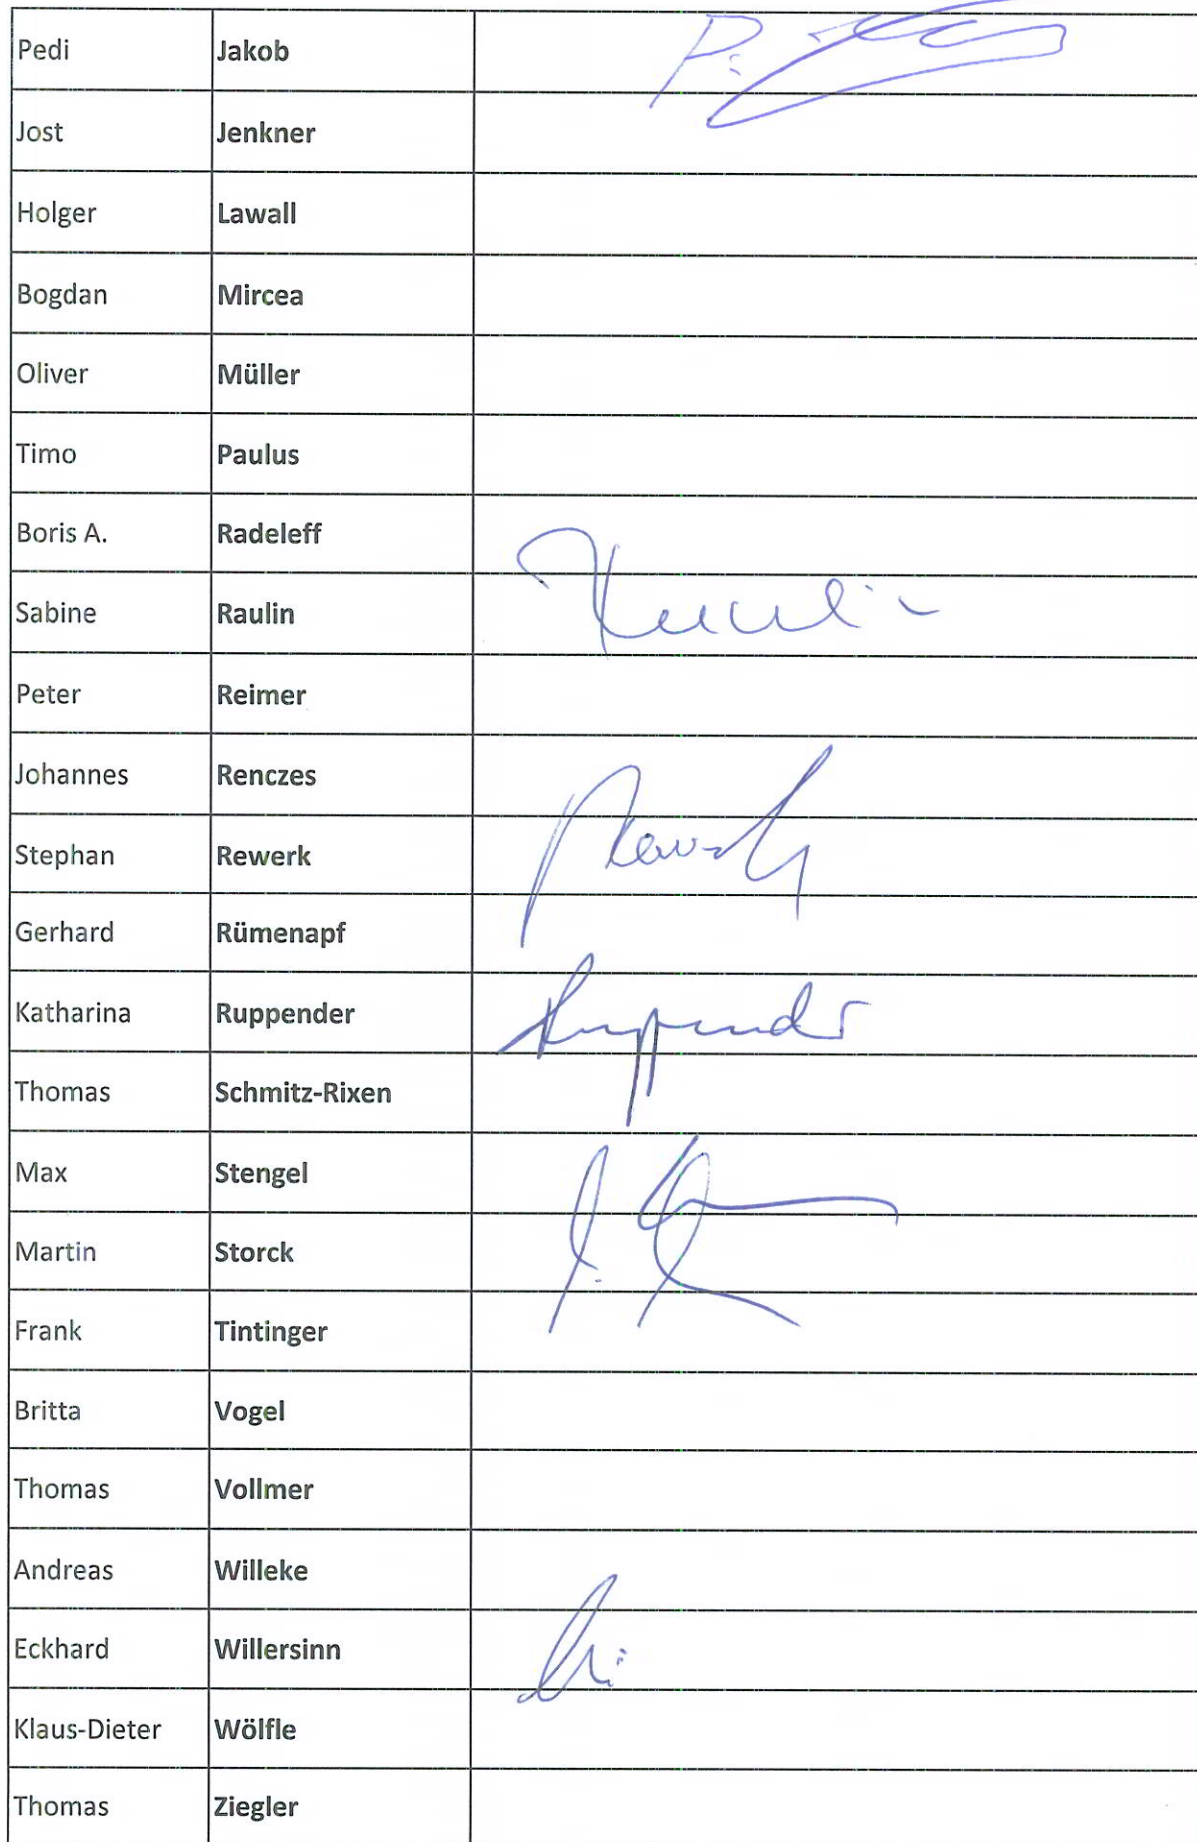 Pedi Jakob
Jost Jenkner
Holger Lawall
Bogdan Mircea
Oliver Müller
Timo Paulus
Boris A. Radeleff
Sabine Raulin Raulin
Peter Reimer
Johannes Renczes
Stephan Rewerk Rewerk
Gerhard Rümenapf
Katharina Ruppender Ruppender
Thomas Schmitz-Rixen
Max Stengel
Martin Storck
Frank Tintinger
Britta Vogel
Thomas Vollmer
Andreas Willeke
Eckhard Willersinn
Klaus-Dieter Wölfle
Thomas Ziegler